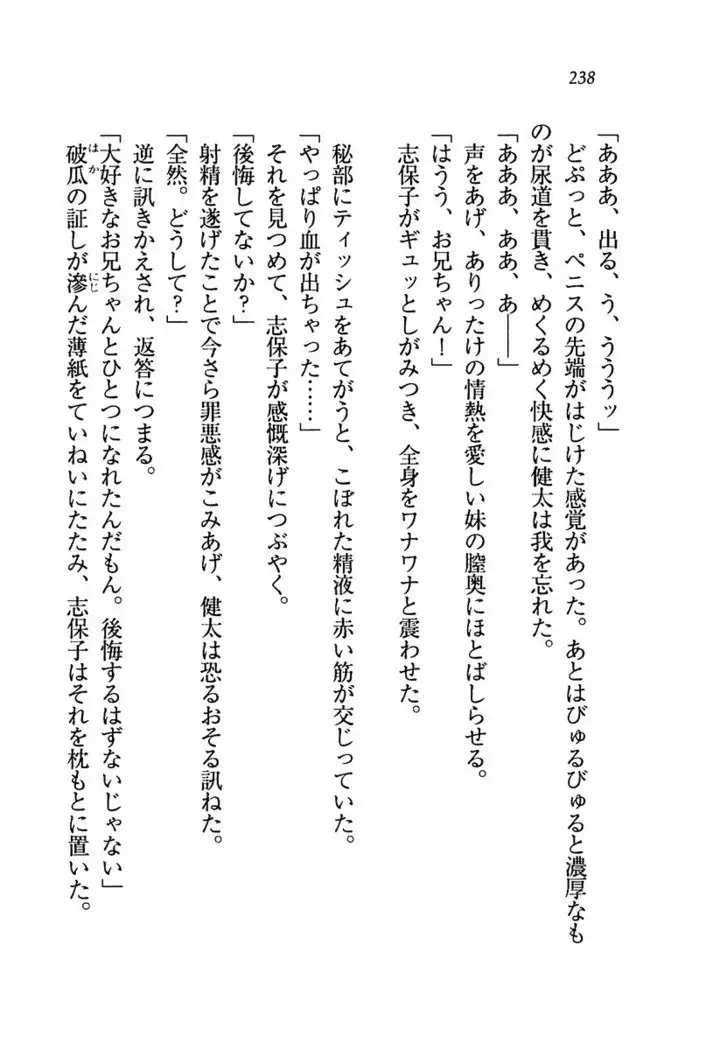 238
「あああ、出る、う、うううッ」
どぷっと、ペニスの先端がはじけた感覚があった。あとはびゅるびゅると濃厚なも
のが尿道を貫き、めくるめく快感に健太は我を忘れた。
「あああ、ああ、あ——」
声をあげ、ありったけの情熱を愛しい妹の膣奥にほとばしらせる。
「はうう、お兄ちゃん！」
志保子がギュッとしがみつき、全身をワナワナと震わせた。
秘部にティッシュをあてがうと、こぼれた精液に赤い筋が交じっていた。
「やっぱり血が出ちゃった……」
それを見つめて、志保子が感慨深げにつぶやく。
「後悔してないか？」
射精を遂げたことで今さら罪悪感がこみあげ、健太は恐るおそる訊ねた。
「全然。どうして？」
逆に訊きかえされ、返答につまる。
「大好きなお兄ちゃんとひとつになれたんだもん。後悔するはずないじゃない」
破瓜の証しが滲んだ薄紙をていねいにたたみ、志保子はそれを枕もとに置いた。